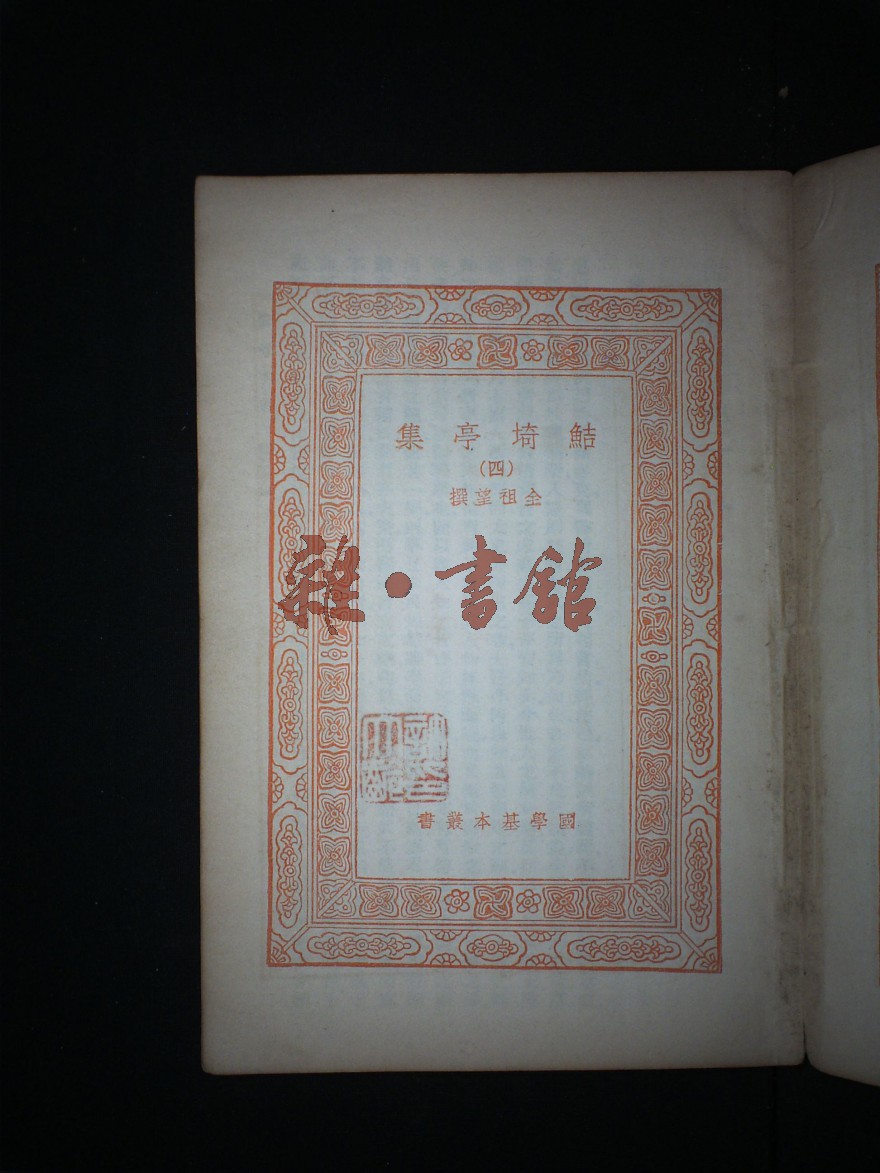 鮚埼亭集
(四)
全祖望撰
雜·書館
國學基本叢書